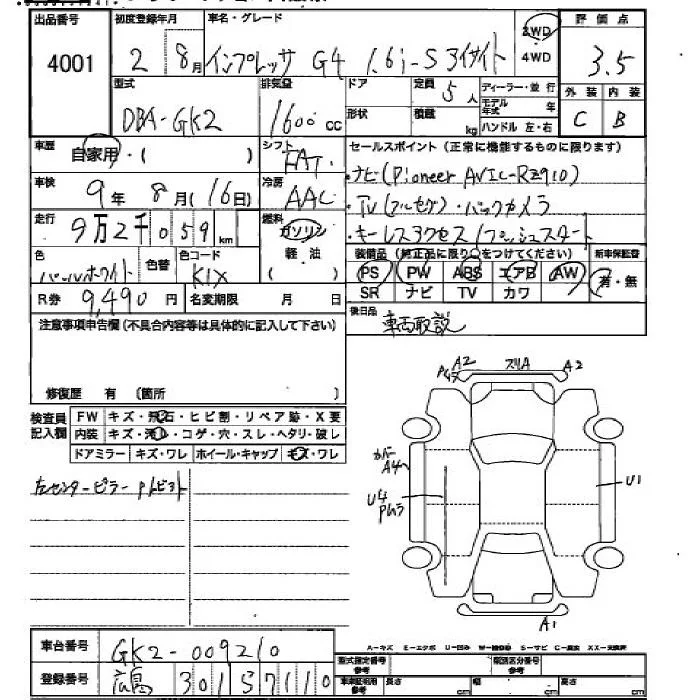 出品番号 初度登録年月 車名・グレード 2WD 4WD 評価点
4001 2 8月 インプレッサ G4 1.6i-S アイサイト 3.5
型式 排気量 ドア 定員 5人 ディーラー・並行 外装 内装
DBA-GK2 1600cc 形状 積載 kg モデル年式 年 ハンドル 左・右 C B
車歴 自家用・( ) シフト FAT セールスポイント (正常に機能するものに限ります)
車検 9年 8月 (16日) 冷房 AAC ・ナビ(Pioneer AVIC-RZ910)
・TV(フルセグ)・バックカメラ
走行 9万2千059km 燃料 ガソリン 軽油 ( ) ・キーレスアクセス/プッシュスタート
色 パールホワイト 色替 色コード K1X 装備品 (純正品に限り○をつけてください) 新車保証書
PS PW ABS エアB AW 有・無
R券 9,490円 名変期限 月 日 SR ナビ TV カワ
注意事項申告欄 (不具合内容等は具体的に記入して下さい) 後日品 車両取説
修復歴 有 〔箇所 〕
検査員記入欄 FW キズ・飛石・ヒビ割・リペア跡・X要
内装 キズ・汚れ・コゲ・穴・スレ・ヘタリ・破レ
ドアミラー キズ・ワレ ホイール・キャップ キズ・ワレ
左センターピラー
A2 スリA A2
カバー A4
U4
U1
A1
車台番号 GK2-009210
登録番号 広島 301 57110
A-キズ E-エクボ U-凹み
型式指定番号 参考 類別区分番号 参考
車車証明用 参考 長さ cm 幅 cm 高さ cm